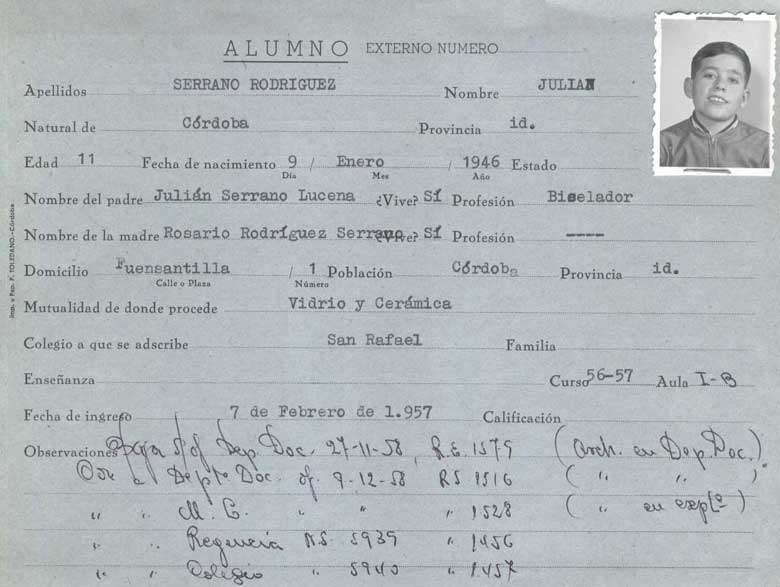 ALUMNO EXTERNO NUMERO
Apellidos SERRANO RODRIGUEZ Nombre JULIAN
Natural de Córdoba Provincia id.
Edad 11 Fecha de nacimiento 9 / Enero / 1946 Estado
Día Mes Año
Nombre del padre Julián Serrano Lucena ¿Vive? Sí Profesión Biselador
Nombre de la madre Rosario Rodríguez Serrano ¿Vive? Sí Profesión ----
Domicilio Fuensantilla / 1 Población Córdoba Provincia id.
Calle o Plaza Número
Mutualidad de donde procede Vidrio y Cerámica
Colegio a que se adscribe San Rafael Familia
Enseñanza Curso 56-57 Aula I-B
Fecha de ingreso 7 de Febrero de 1.957 Calificación
Observaciones Baja s/of Dep. Doc. 27-11-58, R.E. 1579 (Arch. en Dep. Doc.)
a Depte Doc. of. 9-12-58 RS 1516 ( " " ).
" " M. C. " " " 1528 ( " en expte)
" " Regencia NS 5939 " 1456
" " Colegio " 5940 " 1457
Imp. y Pap. F. TOLEDANO.-Córdoba